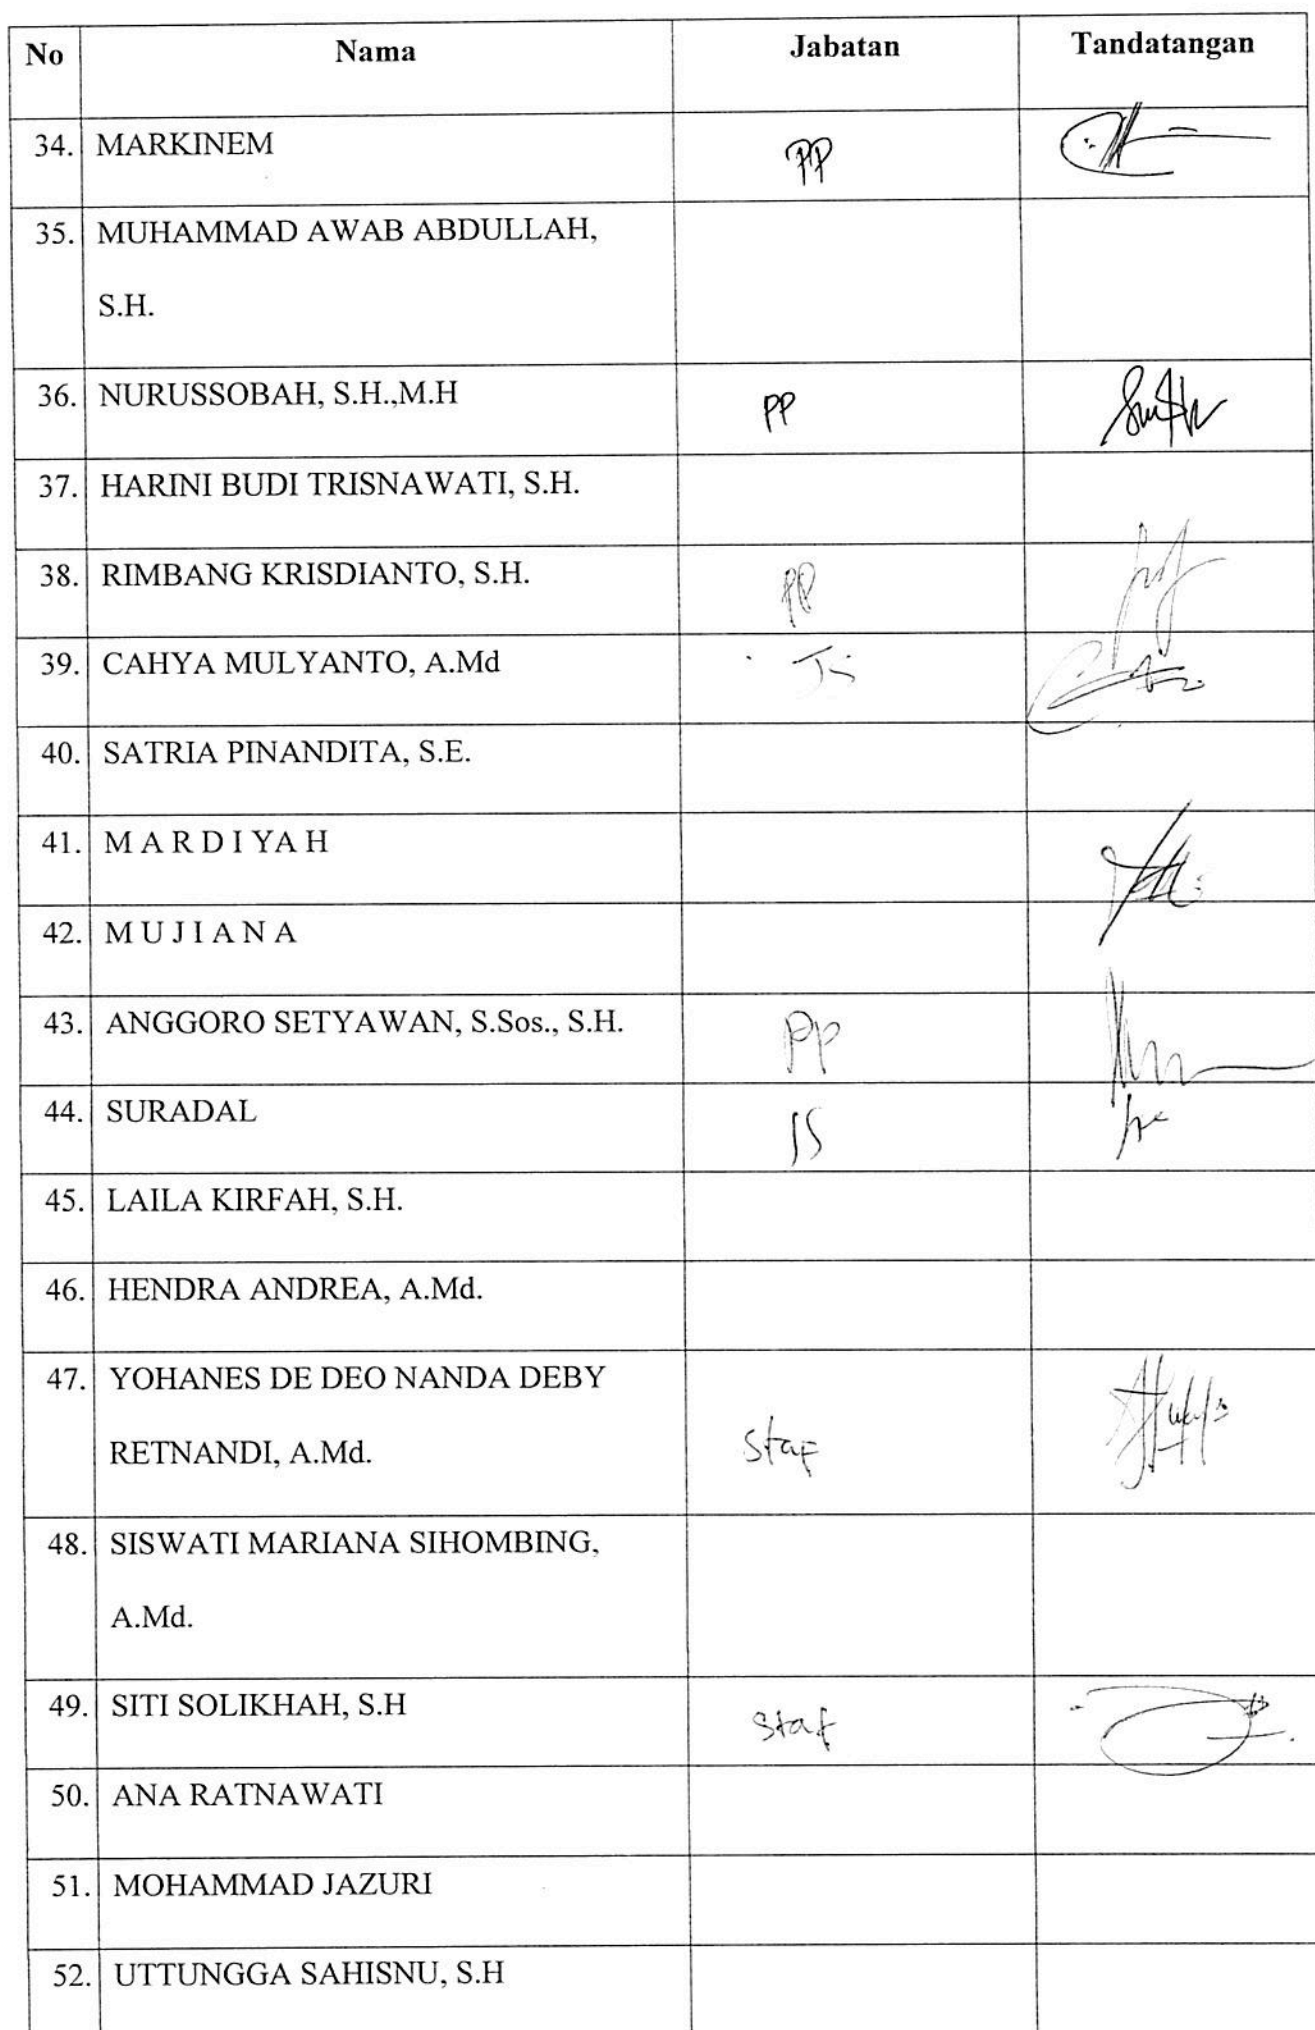 No Nama Jabatan Tandatangan
34. MARKINEM PP
35. MUHAMMAD AWAB ABDULLAH,
S.H.
36. NURUSSOBAH, S.H.,M.H PP
37. HARINI BUDI TRISNAWATI, S.H.
38. RIMBANG KRISDIANTO, S.H. PP
39. CAHYA MULYANTO, A.Md
40. SATRIA PINANDITA, S.E.
41. M A R D I YA H
42. M U J I A N A
43. ANGGORO SETYAWAN, S.Sos., S.H. PP
44. SURADAL JS
45. LAILA KIRFAH, S.H.
46. HENDRA ANDREA, A.Md.
47. YOHANES DE DEO NANDA DEBY
RETNANDI, A.Md. Staf
48. SISWATI MARIANA SIHOMBING,
A.Md.
49. SITI SOLIKHAH, S.H Staf
50. ANA RATNAWATI
51. MOHAMMAD JAZURI
52. UTTUNGGA SAHISNU, S.H